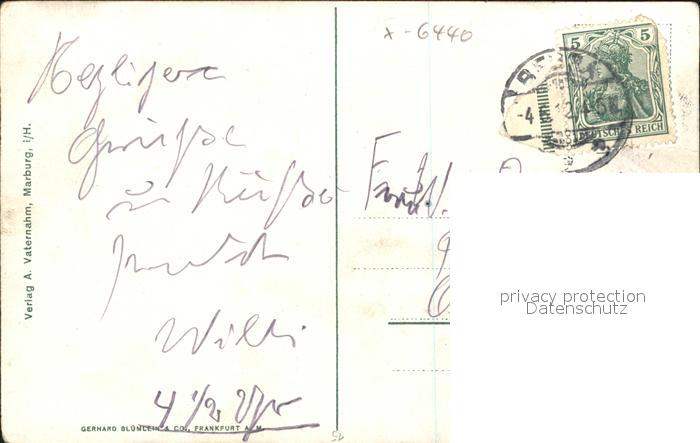 Herzliche
Grüße
u. Küße
sendet
Willi
4 1/2 Uhr
Verlag A. Vaternahm, Marburg, i/H.
GERHARD BLÜMLEIN & CO., FRANKFURT A. M.
x-6440
5 5
DEUTSCHES REICH
-4
Fräul.
privacy protection
Datenschutz
52